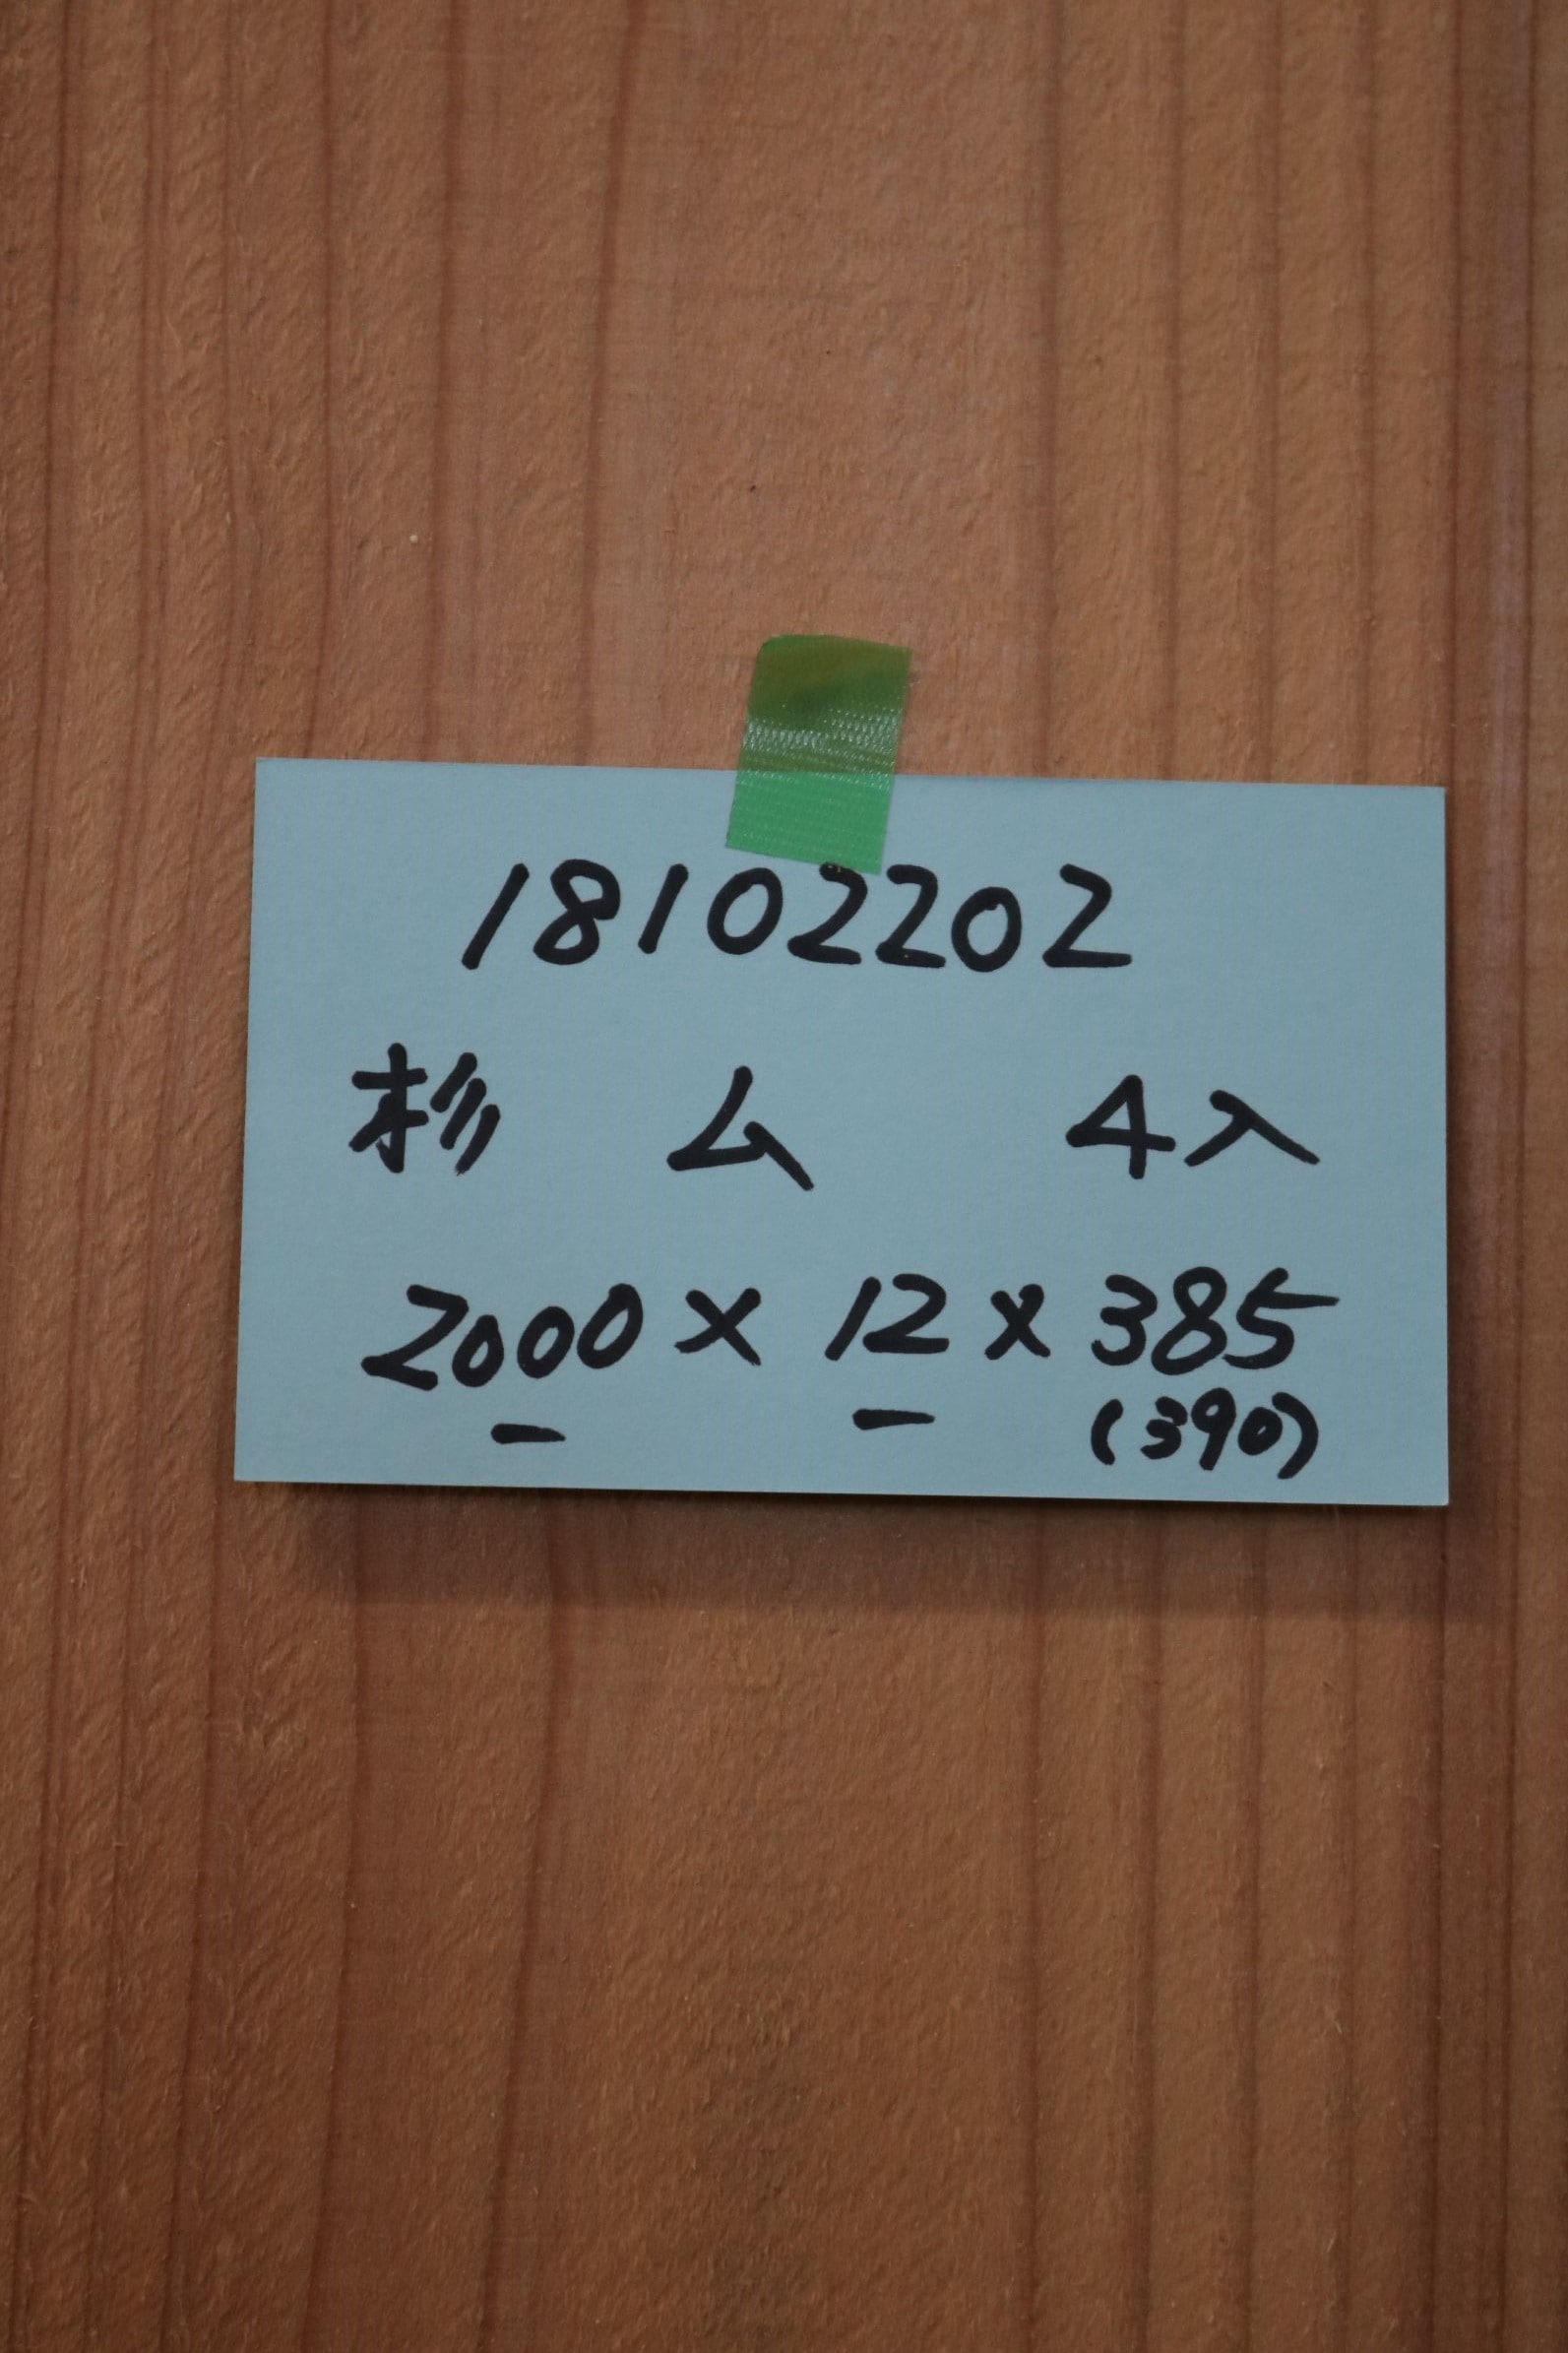 18102202
杉 ム 4入
2000 × 12 × 385
(390)